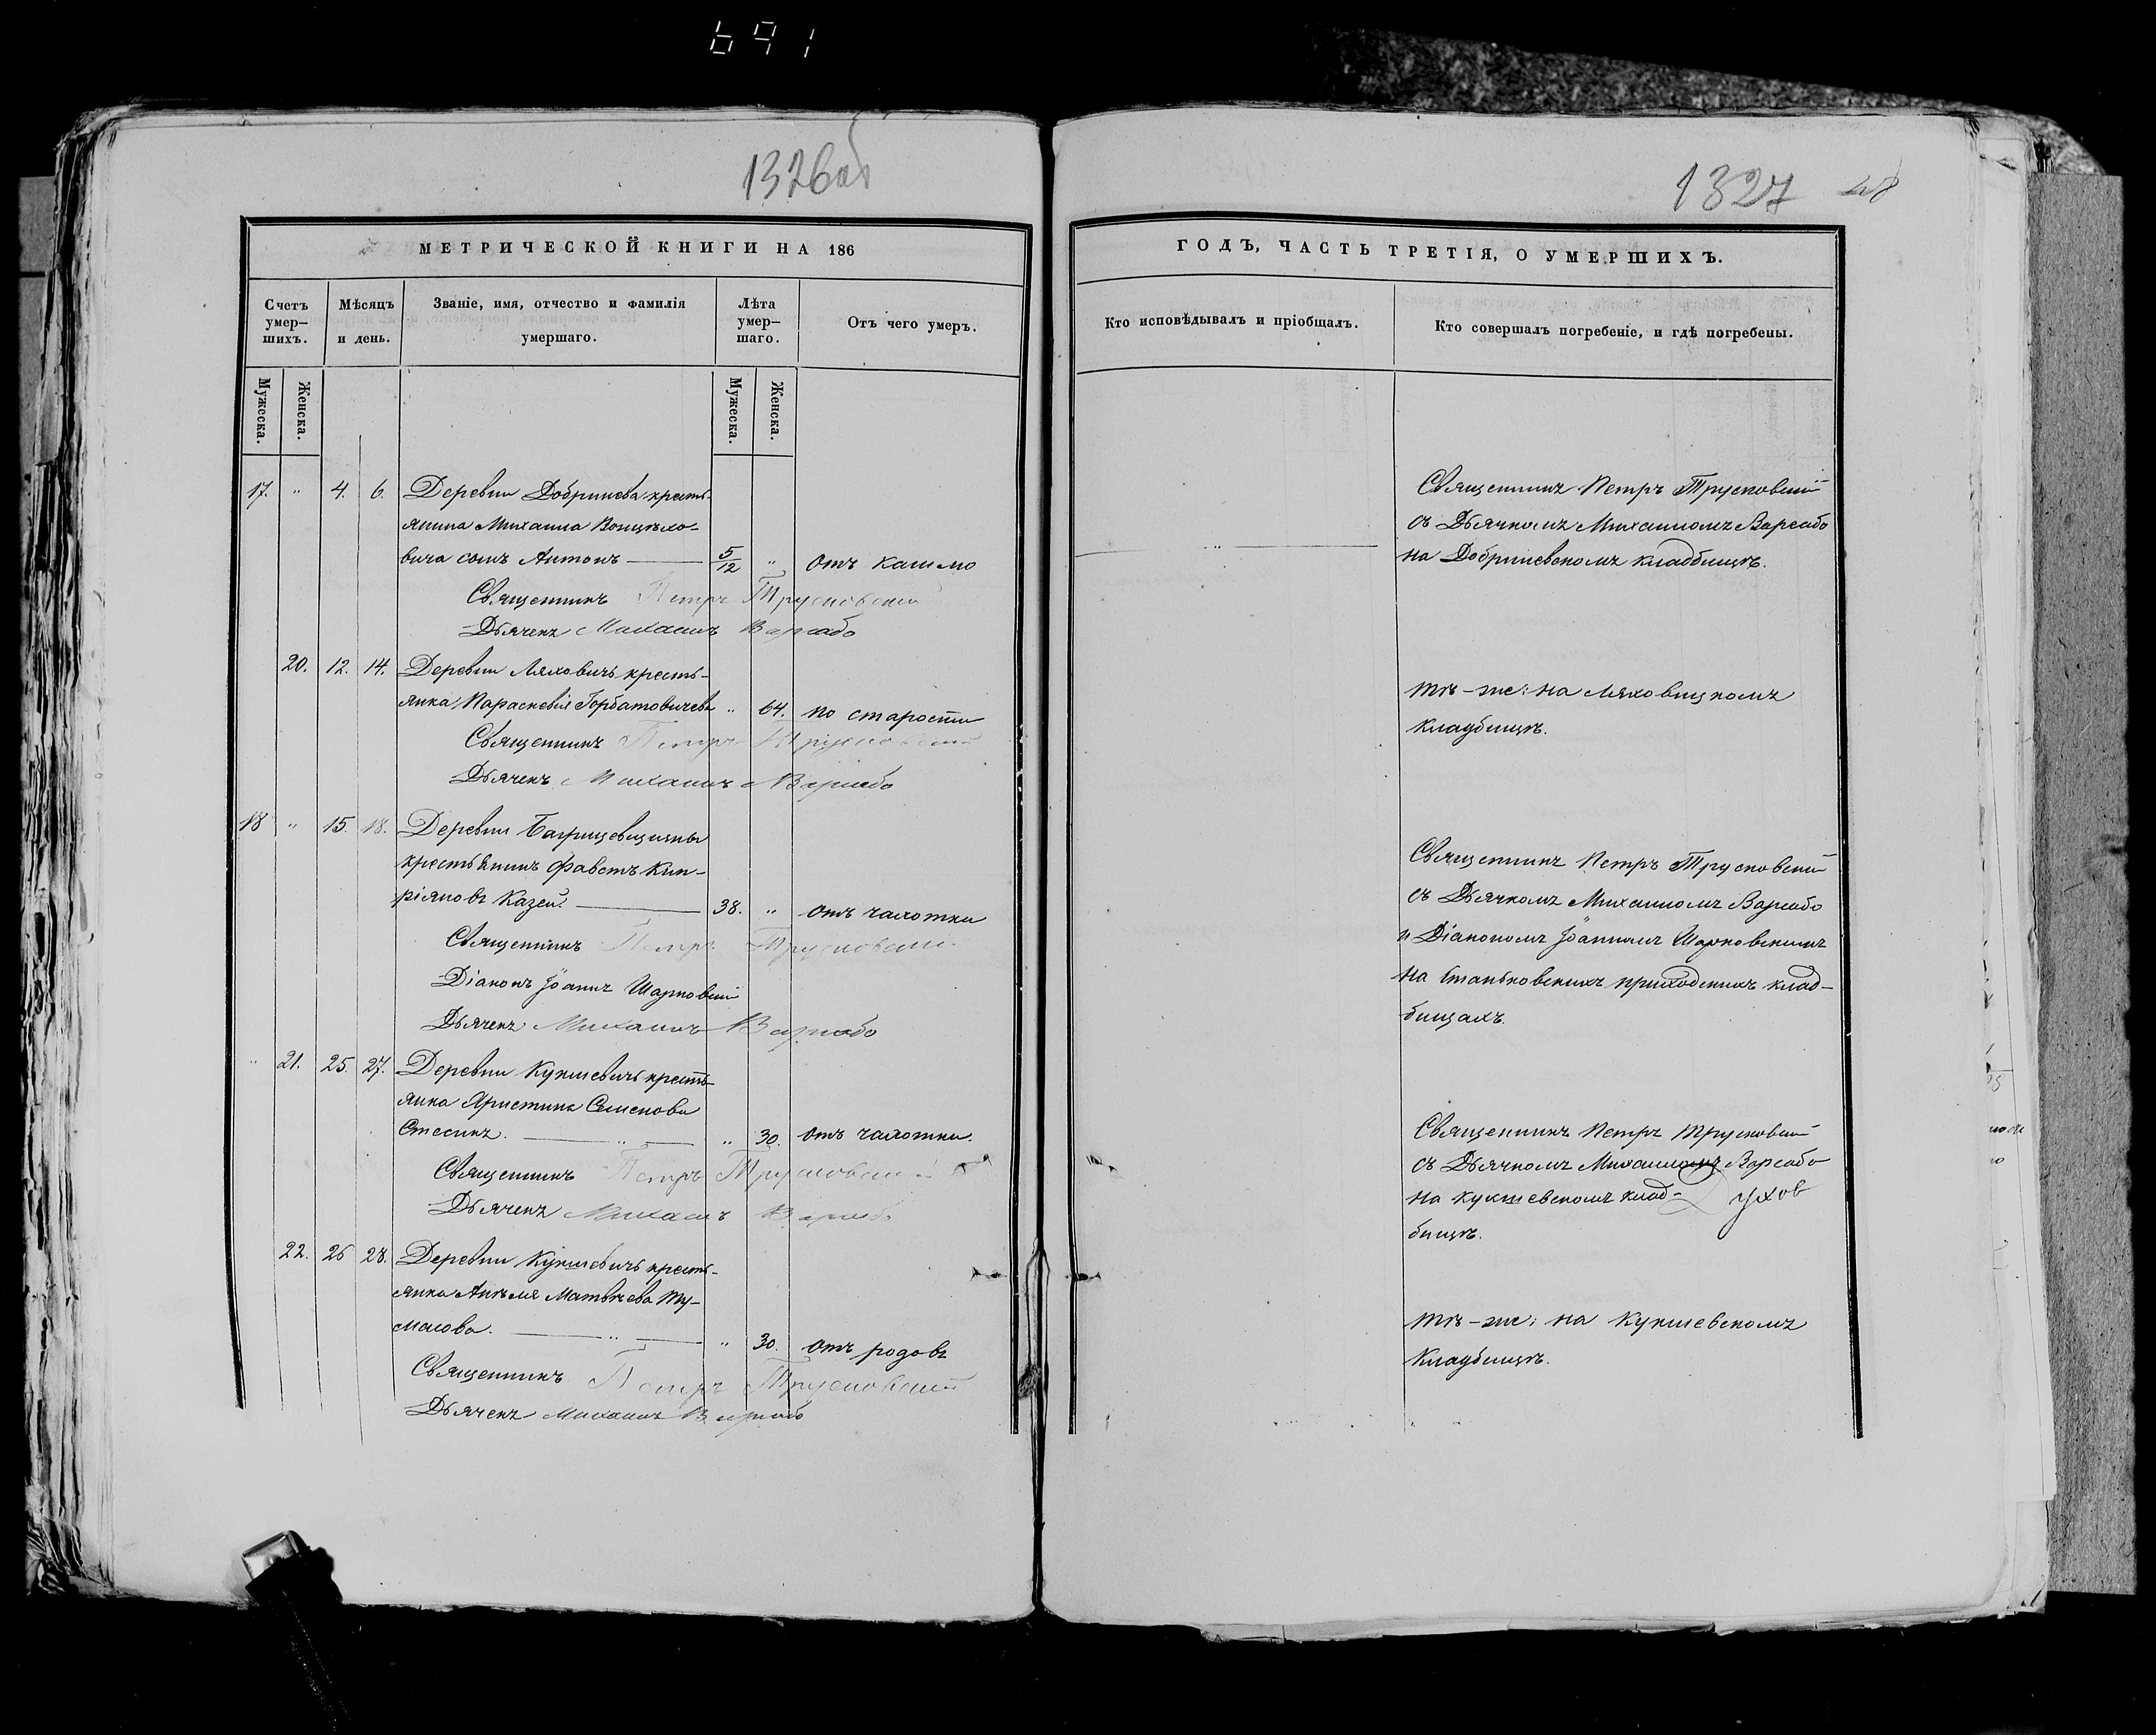 691
1326 об
МЕТРИЧЕСКОЙ КНИГИ НА 186
Счетъ умер-шихъ.
Мѣсяцъ и день.
Званіе, имя, отчество и фамилія умершаго.
Лѣта умер-шаго.
Отъ чего умеръ.
Мужеска.
Женска.
Мужеска.
Женска.
17. " 4. 6. Деревни Добринева кресть-
янина Михаила Войцѣхо-
вича сынъ Антонъ — 5/12 " отъ кашлю
Священникъ Петръ Трусковскій
Дьячекъ Михаилъ Варсабо
20. 12. 14. Деревни Ляховичъ кресть-
янка Параскевія Горбатовичева " 64. по старости
Священникъ Петръ Трусковскій
Дьячекъ Михаилъ Варсабо
18 " 15. 18. Деревни
крестьянинъ Фавстъ Кип-
ріяновъ Казей. — 38. " отъ чахотки
Священникъ Петръ Трусковскій
Діаконъ Іоаннъ Шарковскій
Дьячекъ Михаилъ Варсабо
" 21. 25. 27. Деревни Кукшевичъ кресть-
янка Христина Семенова
— " — " 30. отъ чахотки.
Священникъ Петръ Трусковскій
Дьячекъ Михаилъ Варсабо
22. 26 28. Деревни Кукшевичъ кресть-
янка Анѣля Матвѣева Ту-
масова. — " — " 30. отъ родовъ
Священникъ Петръ Трусковскій
Дьячекъ Михаилъ Варсабо
1327
ГОДЪ, ЧАСТЬ ТРЕТІЯ, О УМЕРШИХЪ.
Кто исповѣдывалъ и пріобщалъ.
Кто совершалъ погребеніе, и гдѣ погребены.
Священникъ Петръ Трусковскій
съ Дьячкомъ Михаиломъ Варсабо
— " — на Добриневскомъ кладбищѣ.
тѣ-же: на Ляховицкомъ
кладбищѣ.
Священникъ Петръ Трусковскій
съ Дьячкомъ Михаиломъ Варсабо
и Діакономъ Іоанномъ Шарковскимъ
на Станьковскихъ приходскихъ клад-
бищахъ.
Священникъ Петръ Трусковскій
съ Дьячкомъ Михаиломъ Варсабо
на Кукшевскомъ клад-
бищѣ.
тѣ-же: на Кукшевскомъ
кладбищѣ.